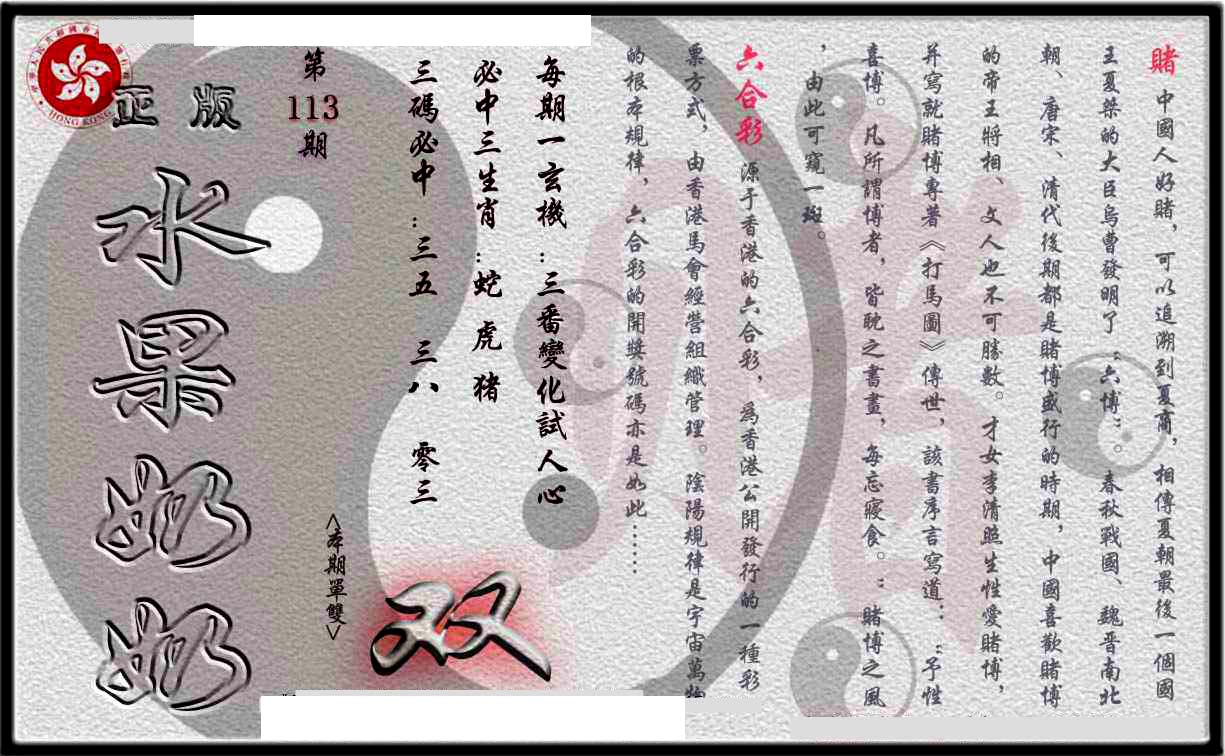 賭 中國人好賭，可以追溯到夏商，相傳夏朝最後一個國
王夏桀的大臣烏曹發明了“六博”。春秋戰國、魏晋南北
朝、唐宋、清代後期都是賭博盛行的時期，中國喜歡賭博
的帝王將相、文人也不可勝數。才女李清照生性愛賭博，
并寫就賭博專著《打馬圖》傳世，該書序言寫道：“予性
喜博。凡所謂博者，皆耽之書畫，每忘寢食。”賭博之風
，由此可窺一斑。
六合彩 源于香港的六合彩，為香港公開發行的一種彩
票方式，由香港馬會經營組織管理。陰陽規律是宇宙萬物
的根本規律，六合彩的開獎號碼亦是如此……
每期一玄機：三番變化試人心
必中三生肖：蛇 虎 猪
三碼必中：三五 三八 零三
第113期
<本期單雙>
双
正版
水果奶奶
HONG KONG